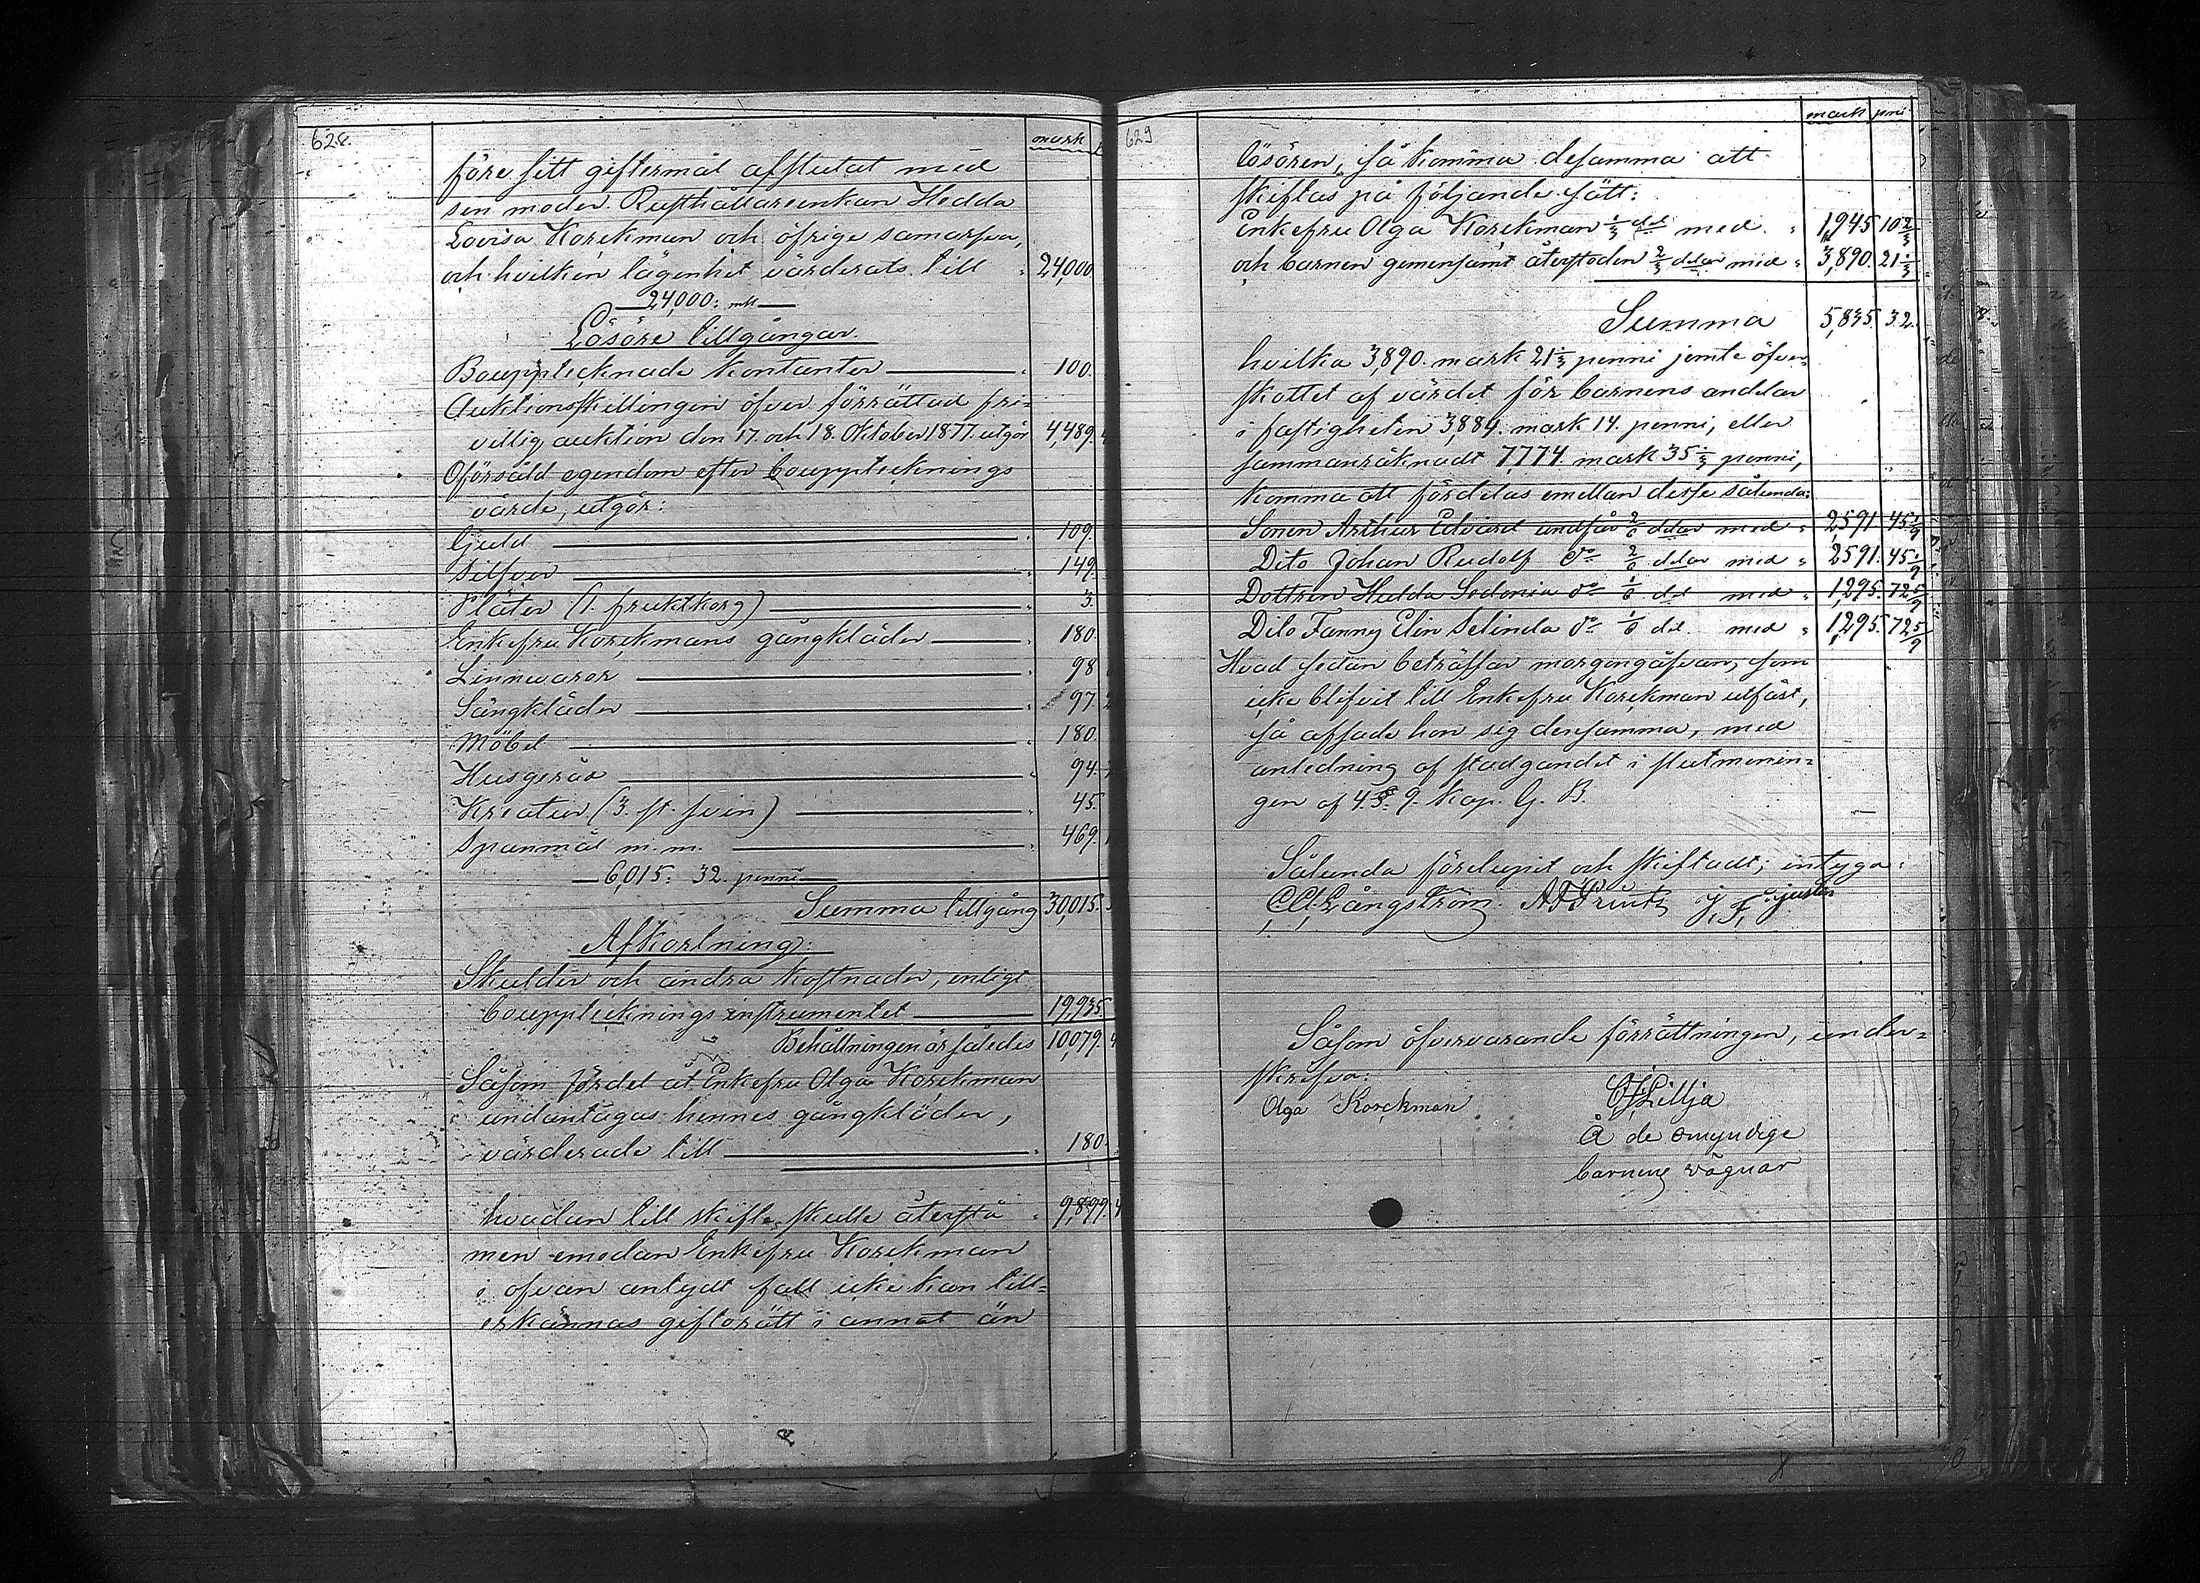 628.
mark
före sitt giftermål afslutat med
sin moder Rusthållareenkan Hedda
Lovisa Korckman och öfrige samarfva,
och hvilken lägenhet värderats till 24,000
24,000: mk
Lösöre tillgångar.
Boupptecknade kontanter 100.
Auktionsskillingen öfver förrättad fri-
villig auktion den 17. och 18. Oktober 1877. utgör 4,489.
Oförsåld egendom efter boupptecknings
värde, utgör:
Guld 109.
Silfver 149.
Pläter (1. fruktkorg) 3.
Enkefru Korckmans gångkläder 180.
Linnevaror 98
Sängkläder 97.
Möbel 180.
Husgeråd 94.
Kreatur (3. st. svin) 45.
Spanmål m. m. 469.
6,015: 32. penni
Summa tillgång 30,015.
Afkortning:
Skulder och andra kostnader, enligt
bouppteckningsinstrumentet 19,935.
Behållningen är således 10,079.
Såsom fördel åt Enkefru Olga Korckman
undantagas hennes gångkläder,
värderade till 180.
hvadan till skifte skulle återstå 9,899.
men emedan Enkefru Korckman
i ofvan antydt fall icke kan till-
erkännas giftorätt i annat än
629
mark pni
lösören, så komma desamma att
skiftas på följande sätt:
Enkefru Olga Korckman 1/3 del med 1,945. 10 2/3
och barnen gemensamt återstoden 2/3 delar med 3,890. 21 1/3
Summa 5,835. 32.
hvilka 3,890. mark 21 1/3 penni jemte öfver-
skottet af värdet för barnens andelar
i fastigheten 3,884. mark 14. penni, eller
sammanräknadt 7,774. mark 35 1/3 penni,
komma att fördelas emellan desse sålunda:
Sonen Arthur Edvard undfår 2/6 delar med 2,591. 45 1/9
Dito Johan Rudolf do 2/6 delar med 2591. 45 1/9
Dottren Hedda Sedonia do 1/6 del med 1,295. 72 5/9
Dito Fanny Elin Selinda do 1/6 del med 1,295. 72 5/9
Hvad sedan beträffar morgongåfvan, som
icke blifvit till Enkefru Korckman utfäst,
så afsade hon sig densamma, med
anledning af stadgandet i slutmenin-
gen af 4. §. 9. Kap. G. B.
Sålunda förelupit och skiftadt; intyga:
C. A. Långström. J. F.
Såsom öfvervarande förrättningen, under-
skrifva:
Olga Korckman Lillja
Å de omyndige
barnens vägnar